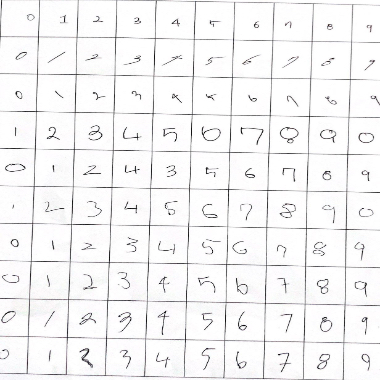 0 1 2 3 4 5 6 7 8 9
0 1 2 3 4 5 6 7 8 9
0 1 2 3 4 5 6 7 8 9
1 2 3 4 5 6 7 8 9 0
0 1 2 4 3 5 6 7 8 9
1 2 3 4 5 6 7 8 9 0
0 1 2 3 4 5 6 7 8 9
0 1 2 3 4 5 6 7 8 9
0 1 2 3 4 5 6 7 8 9
0 1 2 3 4 5 6 7 8 9